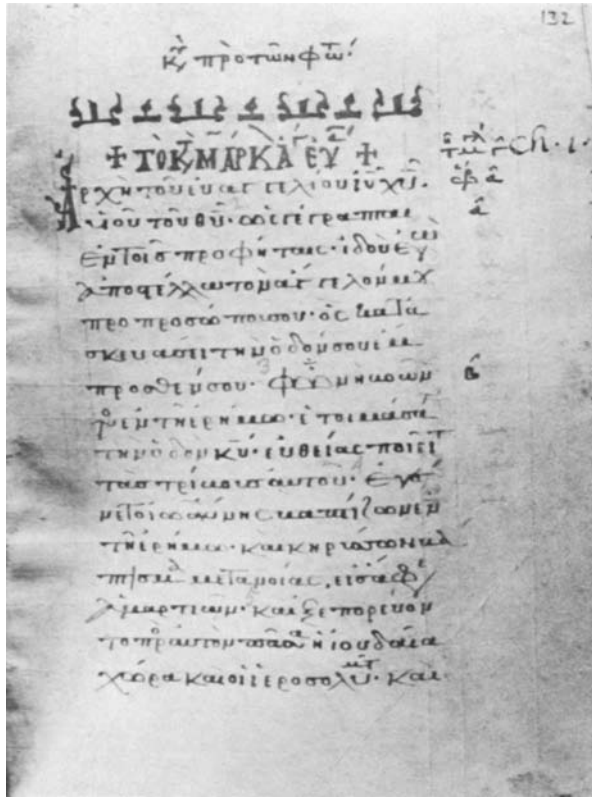 132
κυ πρὸ τῶν φώτ
+ ΤὸΚ, ΜΆΡΚ ΕΥ + Ch. 1.
Ἀρχὴ τοῦ εὐαγγελίου ιῦ χῦ.
υἱοῦ τοῦ θῦ· ὡς γέγραπται
ἐν τοῖς προφήταις· ἰδοὺ ἐγὼ
ἀποστέλλω τὸν ἄγγελόν μου
πρὸ προσώπου σου· ὃς κατα
σκευάσει τὴν ὁδόν σου ἔμ
προσθέν σου· φωνὴ βοῶν
τος ἐν τῆ ἐρήμω· ἑτοιμάσατε
τὴν ὁδὸν κῦ· εὐθείας ποιεῖτε
τὰς τρίβους αὐτοῦ· ἐγέ
νετο ἰωάννης βαπτίζων ἐν
τῆ ἐρήμω· καὶ κηρύσσων βά
πτισμα μετανοίας, εἰς ἄφεσιν
ἁμαρτιῶν· καὶ ἐξεπορεύον
το πρὸς αὐτὸν πᾶσα ἡ ἰουδαία
χώρα καὶ οἱ ἱεροσολυμῖτ· καὶ